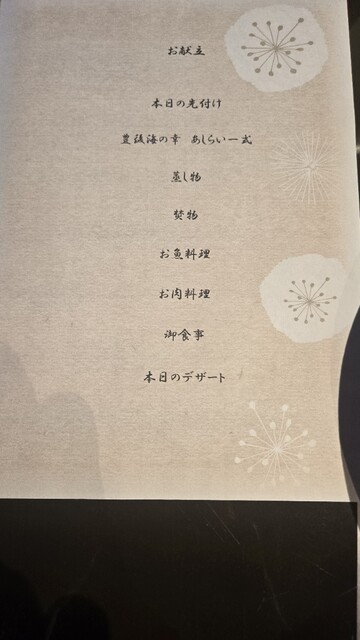 お献立
本日の先付け
豊後海の幸 あしらい一式
蒸し物
焚物
お魚料理
お肉料理
御食事
本日のデザート